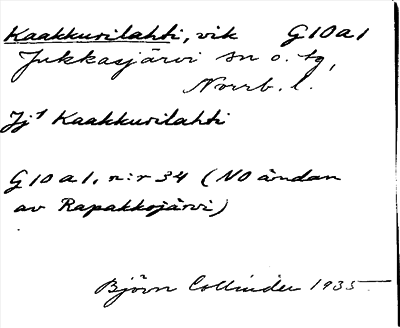 Kaakkurilahti, vik G10a1
Jukkasjärvi sn o. tg,
Norrb. l.
Jj¹ Kaakkurilahti
G10a1, n:r 34 (NO ändan
av Rapakkojärvi)
Björn Collinder 1935